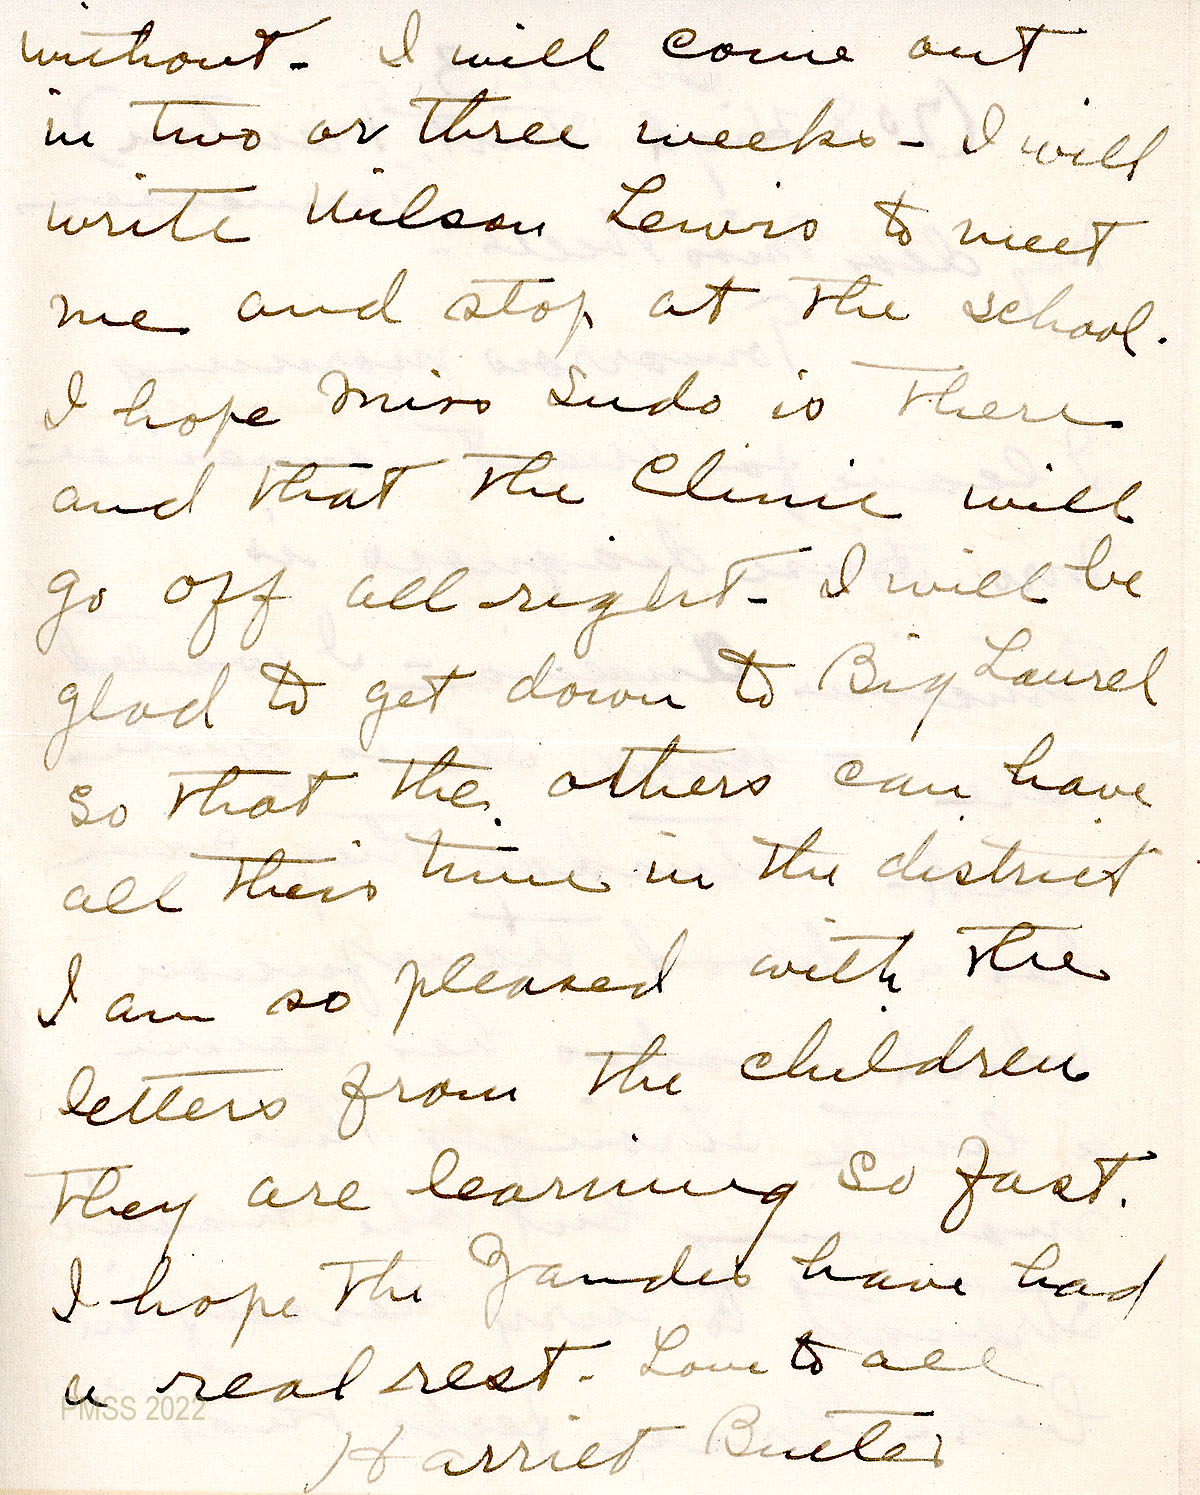 without - I will come out
in two or three weeks - I will
write Wilson Lewis to meet
me and stop at the school.
I hope Miss Sudo is there
and that the Clinic will
go off all right - I will be
glad to get down to Big Laurel
so that the others can have
all their time in the district
I am so pleased with the
letters from the children
They are learning so fast.
I hope the Zandes have had
a real rest. Love to all
Harriet Butler
PMSS 2022